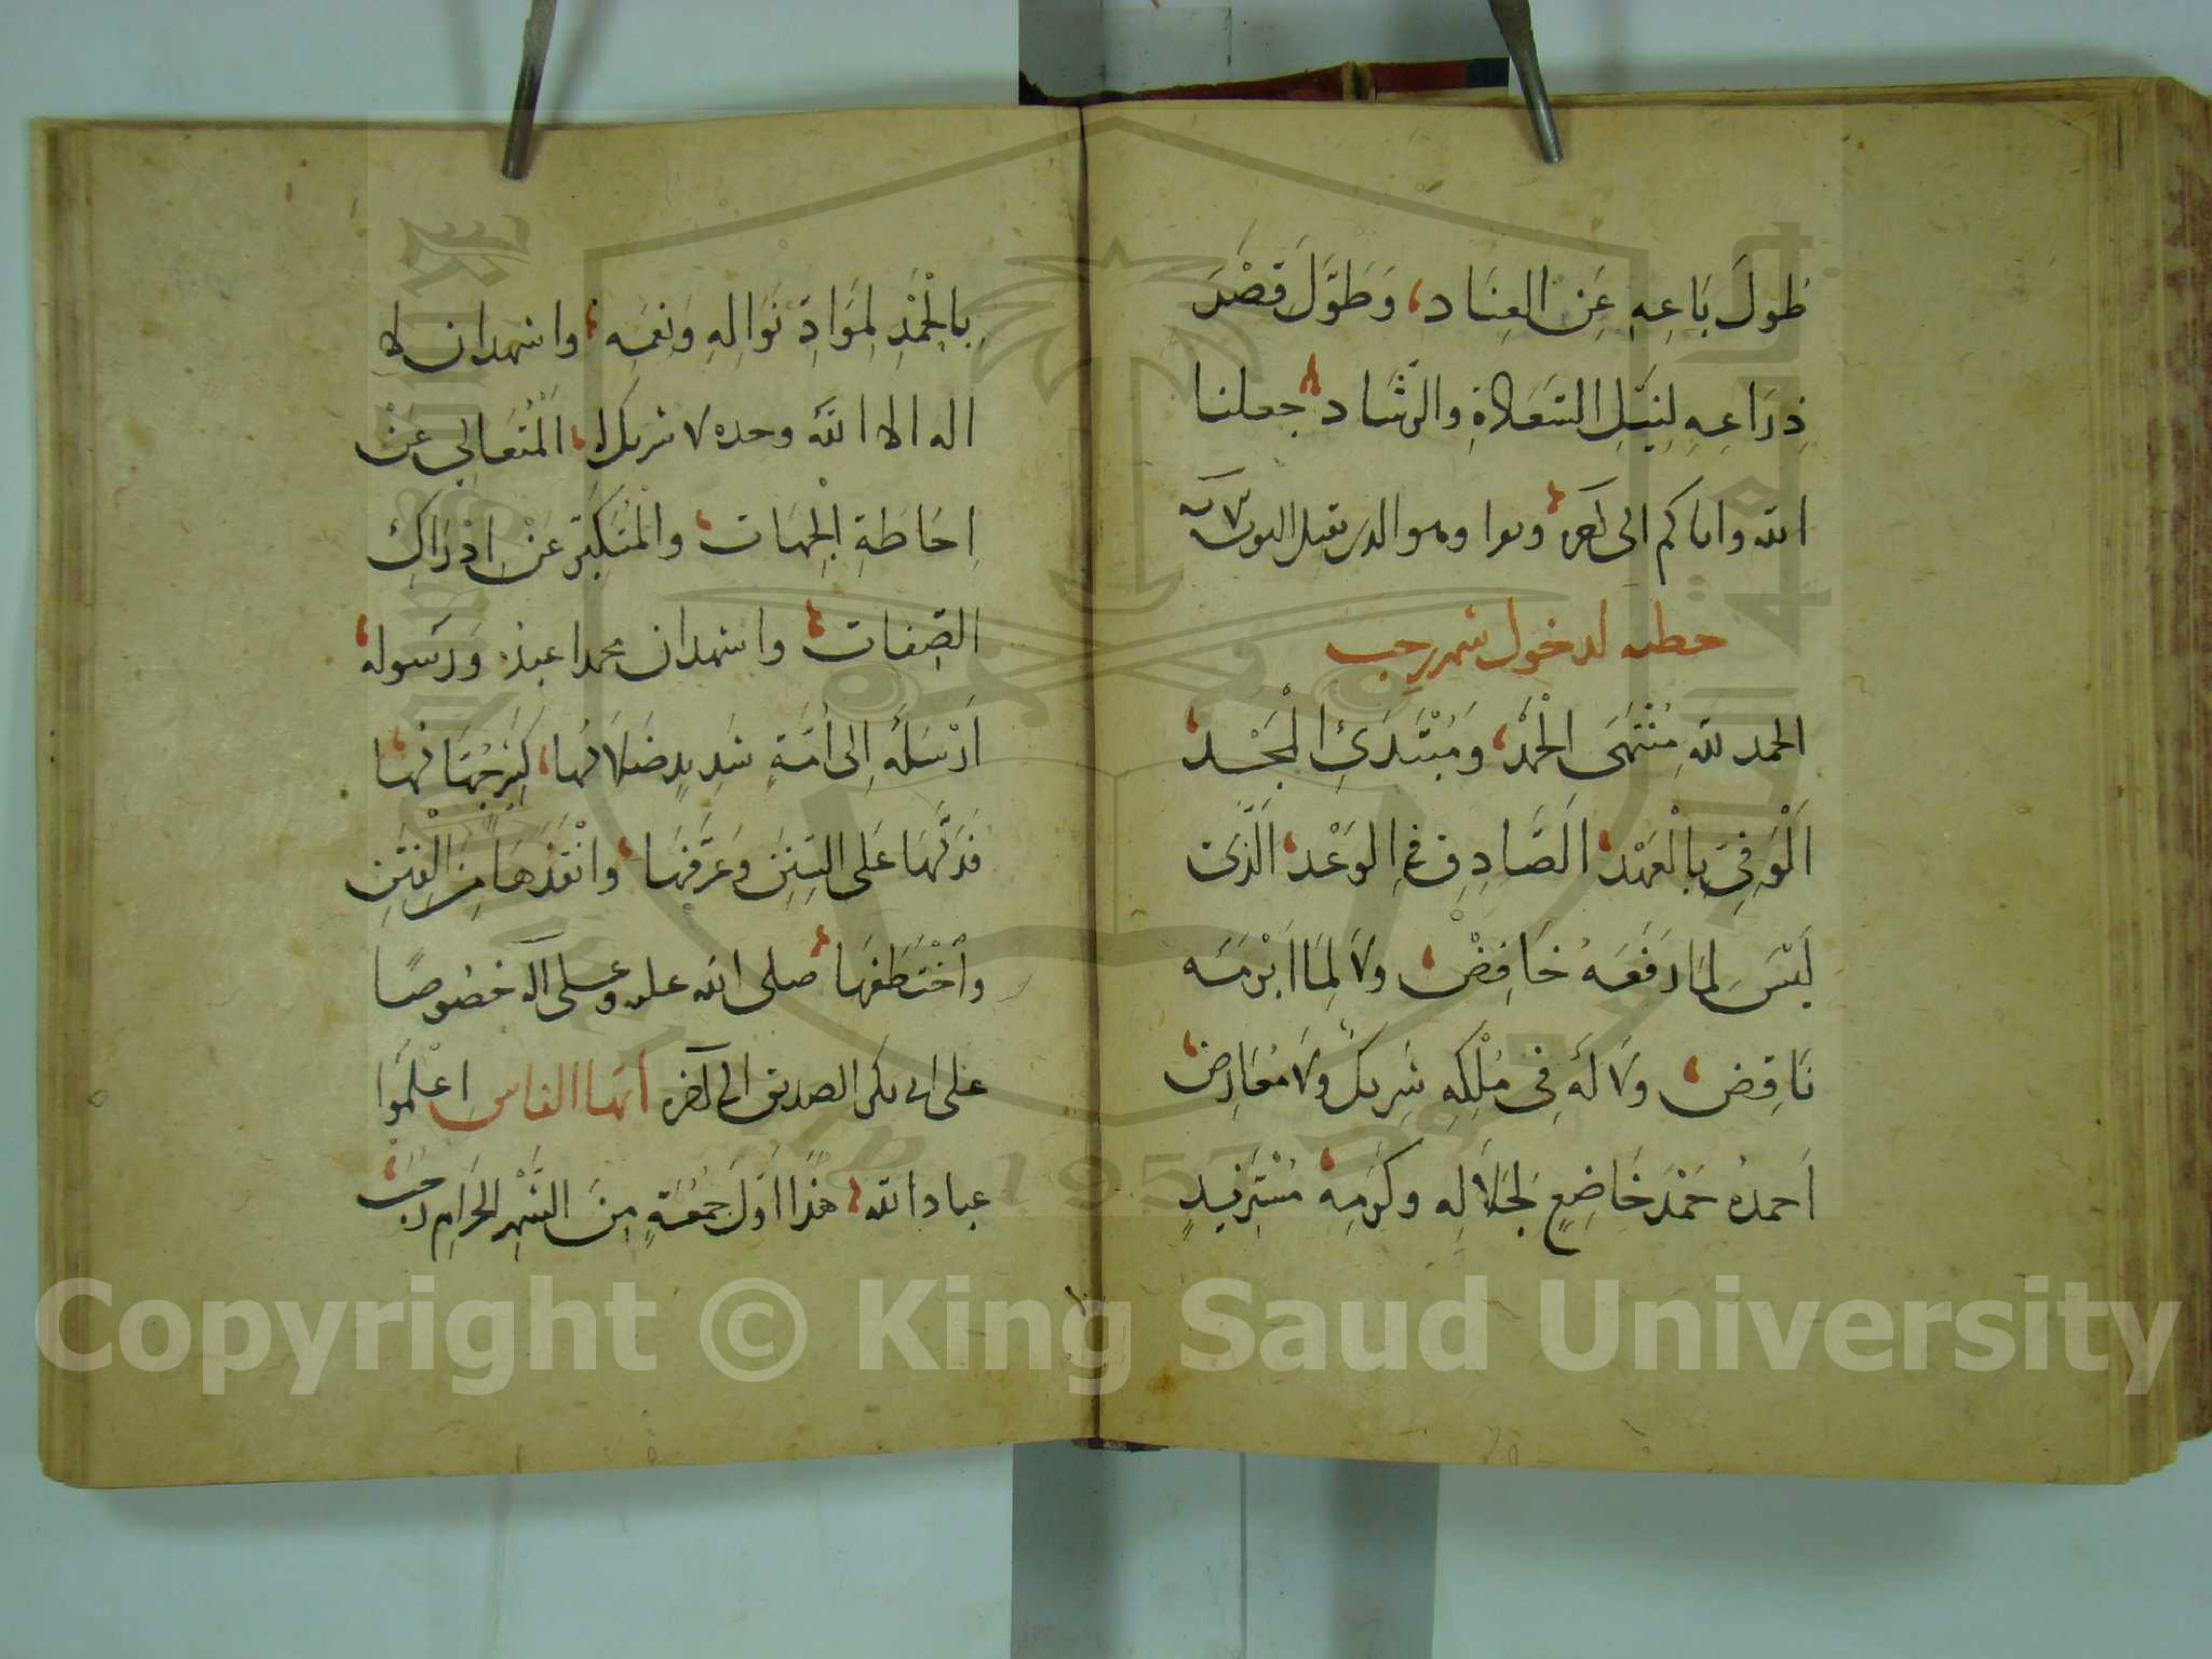 طُولَ بَاعِهِ عَنِ العِنَاد، وَطَوَّلَ قَصْرَ
ذِرَاعِهِ لِنَيْلِ السَّعَادَةِ والرَّشَاد جعلنا
الله واياكم الى آخره وهو الذي يقبل التوبة
خطبه لدخول شهر رجب
الحمد لله مُنْتَهَى الْحَمْدِ، وَمُبْتَدَئِ الْمَجْد،
اَلْوَفِيِّ بِالْعَهْد، الصَّادِقِ فِي الوَعْد، الَّذِى
لَيْسَ لِمَا رَفَعَهُ خَافِضْ، وَلَا لِمَا اَبْرَمَهُ
نَاقِض، وَلَا لَهُ فِي مُلْكِهِ شَرِيكٌ وَلَا مُعَارِض،
اَحمدُه حَمْدَ خَاضِعٍ لِجَلَالِهِ وكَرَمِهِ، مُسْتَزِيدٍ
بِالْحَمْدِ لِمَوَادِّ نَوَالِهِ وَنِعَمِهِ، واشهد ان لا
اله الا الله وحده لا شريك له، الْمُتَعَالِي عَنْ
اِحَاطَةِ الْجِهَات، والْمُتَكَبِّرِ عَنْ اِدْرَاكِ
الصِّفات، واشهد ان محمدا عبده وَرَسوله،
اَرْسَلَهُ اِلى اُمَّةٍ شَدِيدٍ ضَلَالَهَا، كَثِيرٍ جُهَّالُهَا،
فَدَلَّهَا عَلَى السُّنَنِ وَعَرَّفَهَا، وانْقَذَهَا مِنَ الْفِتَنِ
وَاخْتَطَفَهَا، صلى الله عليه وعلى آله خصُوصًا
على ابى بكر الصديق الى آخره اَيُّها الناس اِعْلَمُوا
عباد الله، هَذَا اَوَّلُ جُمُعَةٍ مِنَ الشَّهْرِ الحَرَامِ رَجَبْ،
Copyright © King Saud University
1957